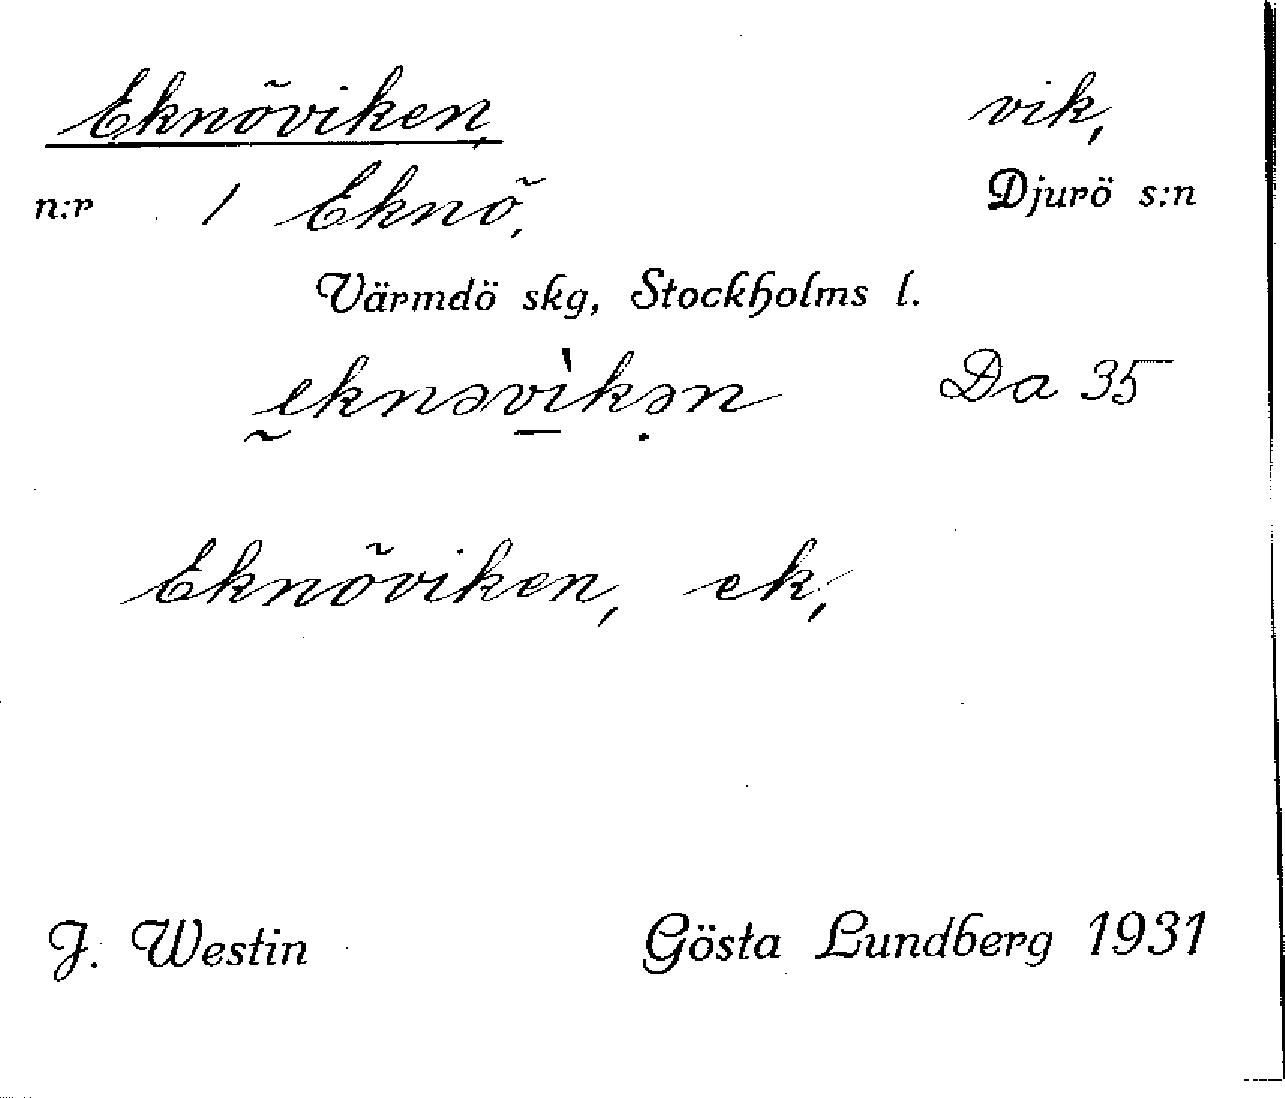 Eknöviken, vik,
n:r 1 Eknö, Djurö s:n
Värmdö skg, Stockholms l.
eknəvìkən Da 35
Eknöviken, ek,
J. Westin Gösta Lundberg 1931